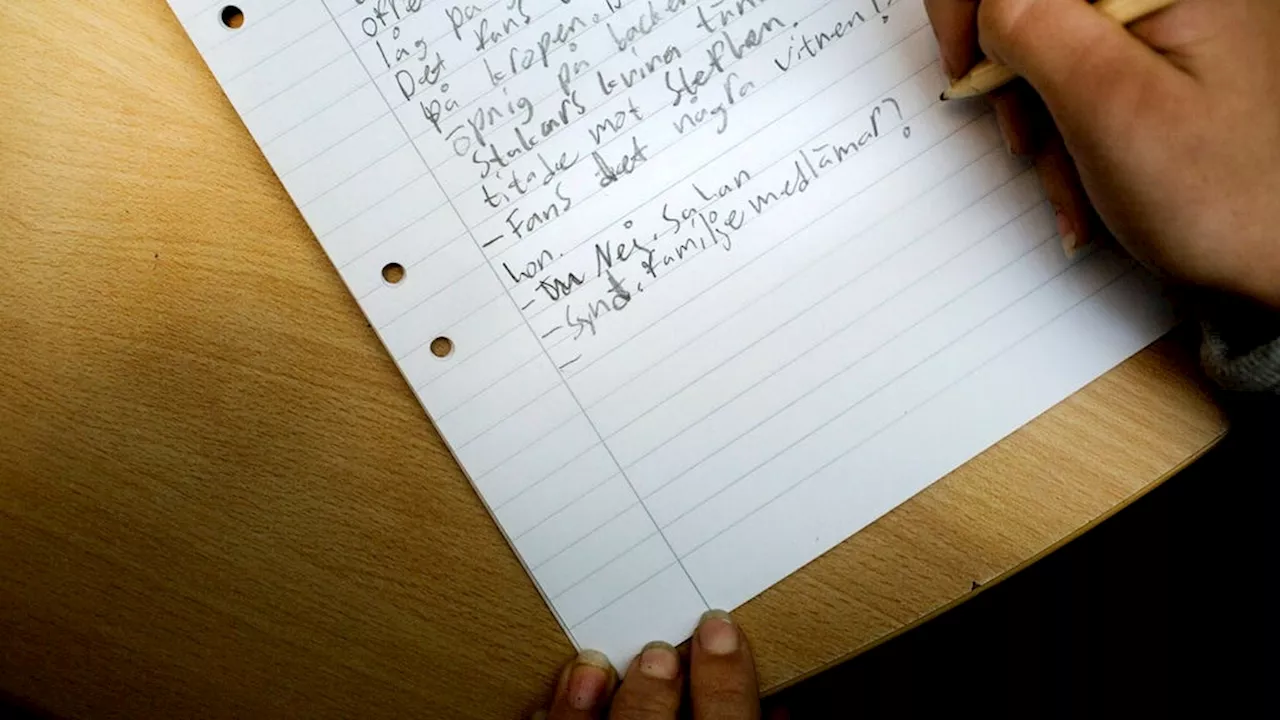 offe
låg på
Det fans
på kropen.
öpnig på backen
Stakars kvina tän
titade mot Stephen.
- Fans det några vitnen?
hon.
- Nej. Sahan
- Synd, familje medlämar?
-